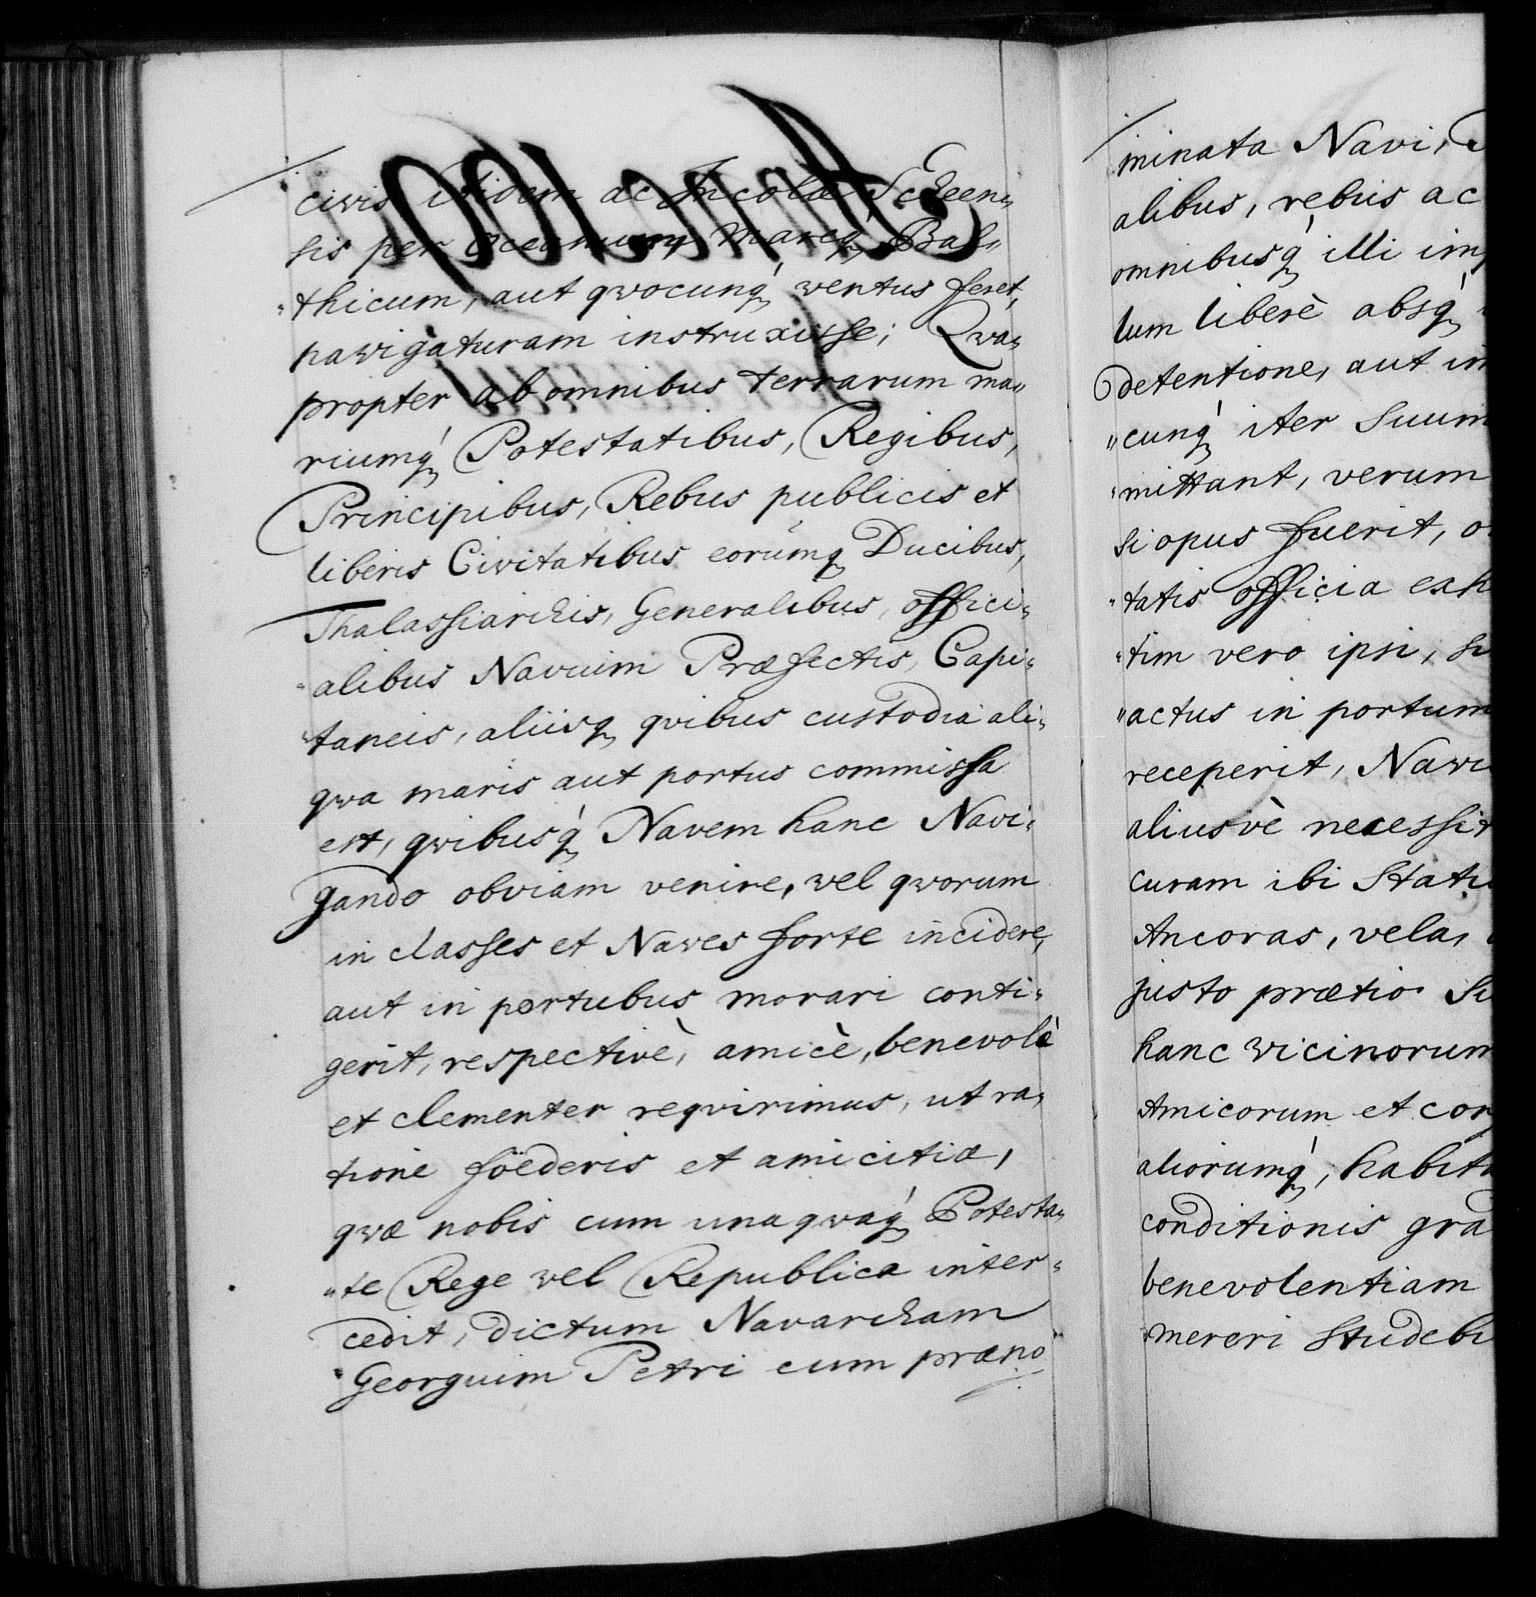 civis itidem ac Incolæ Scheen„
sis per Oceanum Mareq́ Bal„
„thicum, aut qvocunq́ ventus feret,
navigaturam instruxisse; Qva„
propter ab omnibus terrarum ma„
riumq́ Potestatibus, Regibus,
Principibus, Rebus publicis et
liberis Civitatibus eorúmq Ducibus,
Thalassiarchis, Generalibus, offici„
„alibus Navium Præfectis, Capi„
taneis, aliisq qvibus custodia ali„
qva maris aut portus commissa
est, qvibusq́ Navem hanc Navi„
gando obviam venire, vel qvorum
in classes et Naves forte incidere,
aut in portubus morari conti„
gerit, respectivè, amicè, benevolè
et clementer reqvirimus, ut ra„
tione föederis et amicitiæ,
qvæ nobis cum unaqvaq́ Potesta„
„te Rege vel Republica inter„
cedit, dictum Navarcham
Georgium Petri cum præno
minata Navi,
alibus, rebus ac
omnibusq́ illi im
lum liberè absq́
detentione, aut in
„cunq́ iter Suum
„mittant, verum
si opus fuerit, o
„tatis officia exh
„tim vero ipsi, si
„actus in portum
receperit, Navi
aliusvè necessit
curam ibi Statu
Ancoras, vela,
justo prætio Su
hanc vicinorum
Amicorum et con
aliorumq́, habita
conditionis gra
benevolentiam
mereri Studebi